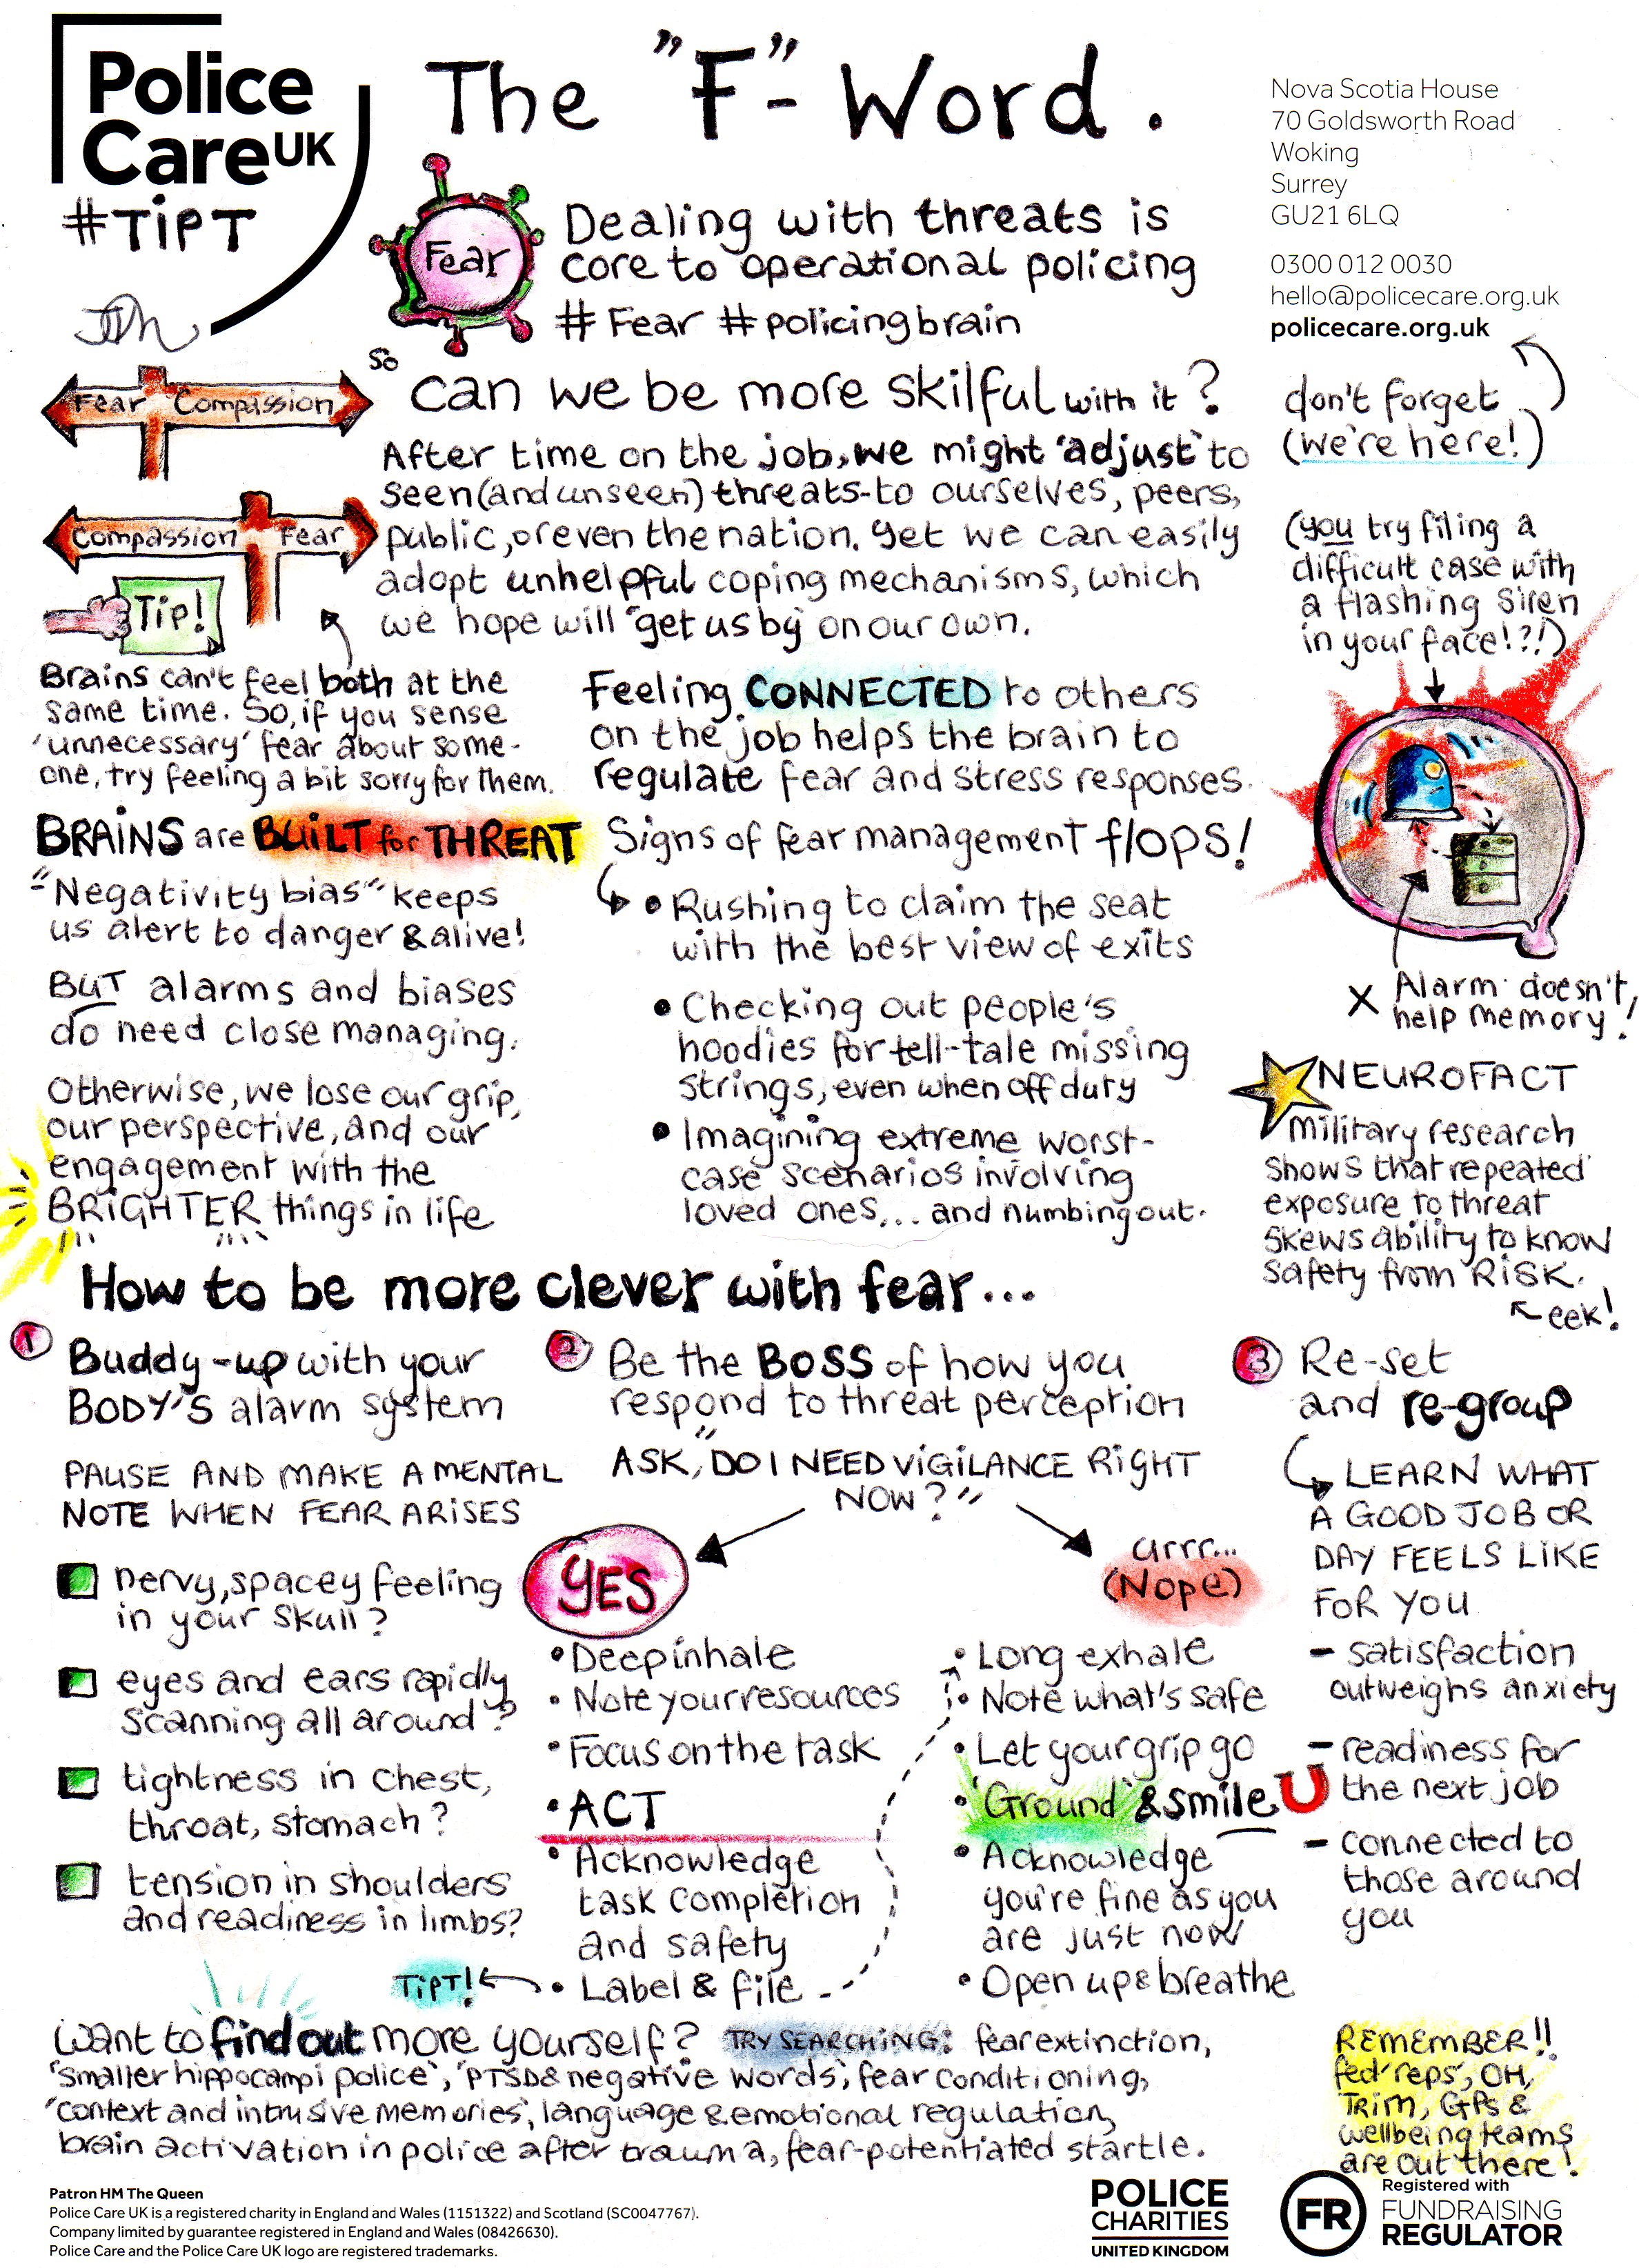 Police
Care UK
#TIPT
The "F"-Word.
Nova Scotia House
70 Goldsworth Road
Woking
Surrey
GU21 6LQ
0300 012 0030
hello@policecare.org.uk
policecare.org.uk
don't forget
(we're here!)
Fear
Dealing with threats is
core to operational policing
# Fear # policingbrain
Fear Compassion
Compassion Fear
Tip!
So can we be more skilful with it?
After time on the job, we might 'adjust' to
seen (and unseen) threats - to ourselves, peers,
public, or even the nation. Yet we can easily
adopt unhelpful coping mechanisms, which
we hope will "get us by" on our own.
Brains can't feel both at the
same time. So, if you sense
'unnecessary' fear about some-
one, try feeling a bit sorry for them.
Feeling CONNECTED to others
on the job helps the brain to
regulate fear and stress responses.
(you try filing a
difficult case with
a flashing siren
in your face!?!)
X Alarm doesn't
help memory!
BRAINS are BUILT for THREAT
"Negativity bias" keeps
us alert to danger & alive!
BUT alarms and biases
do need close managing.
Otherwise, we lose our grip,
our perspective, and our
engagement with the
BRIGHTER things in life
Signs of fear management flops!
• Rushing to claim the seat
with the best view of exits
• Checking out people's
hoodies for tell-tale missing
strings, even when off duty
• Imagining extreme worst-
case scenarios involving
loved ones... and numbing out.
NEUROFACT
Military research
shows that repeated
exposure to threat
skews ability to know
safety from RISK.
eek!
How to be more clever with fear...
1 Buddy-up with your
BODY'S alarm system
PAUSE AND MAKE A MENTAL
NOTE WHEN FEAR ARISES
nervy, spacey feeling
in your skull?
eyes and ears rapidly
scanning all around?
tightness in chest,
throat, stomach?
tension in shoulders
and readiness in limbs?
2 Be the BOSS of how you
respond to threat perception
ASK, "DO I NEED VIGILANCE RIGHT
NOW?"
YES
• Deep inhale
• Note your resources
• Focus on the task
• ACT
• Acknowledge
task completion
and safety
• Label & file
TIPT!
urrr...
(Nope)
• Long exhale
• Note what's safe
• Let your grip go
• 'Ground' & smile
• Acknowledge
you're fine as you
are just now
• Open up & breathe
3 Re-set
and re-group
LEARN WHAT
A GOOD JOB OR
DAY FEELS LIKE
FOR YOU
- satisfaction
outweighs anxiety
- readiness for
the next job
- connected to
those around
you
Want to find out more yourself? TRY SEARCHING: fear extinction,
'smaller hippocampi police', 'PTSD & negative words', fear conditioning,
'context and intrusive memories', language & emotional regulation,
brain activation in police after trauma, fear-potentiated startle.
REMEMBER!!
fed 'reps', OH,
TRiM, GPs &
wellbeing teams
are out there!
Patron HM The Queen
Police Care UK is a registered charity in England and Wales (1151322) and Scotland (SC0047767).
Company limited by guarantee registered in England and Wales (08426630).
Police Care and the Police Care UK logo are registered trademarks.
POLICE
CHARITIES
UNITED KINGDOM
FR
Registered with
FUNDRAISING
REGULATOR